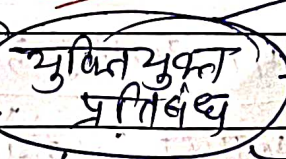 युक्तियुक्त
प्रतिबंध